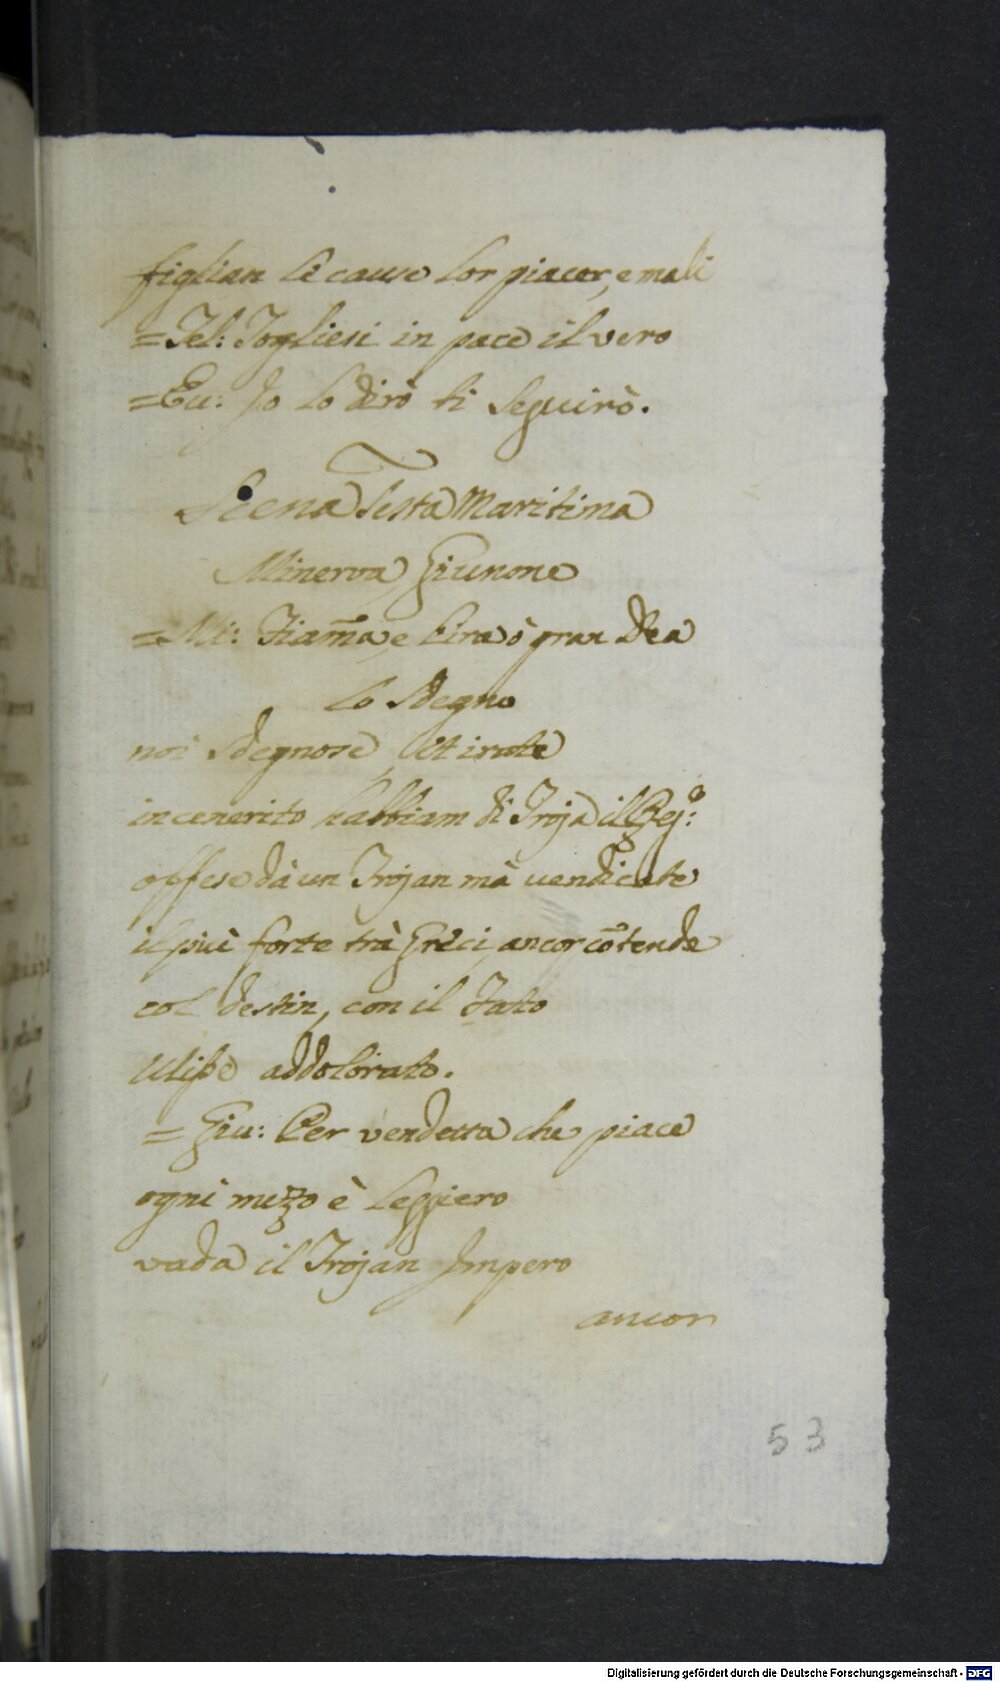 figlian le cause lor piacer, e mali
=Tel: Togliesi in pace il vero
=Eu: Io lo dirò ti seguirò.
Scena Sesta Maritima
Minerva, Giunone
=Mi: Fiam̃a, e l'ira ò gran Dea
lo sdegno
noi sdegnose, et irate
incenerito habbiam di Troja il Reg.º:
offese dà un Trojan mà vendicate
il più forte trà Greci, ancor cõtende
col destin, con il Fato
Uliße addolorato.
=Giu: Per vendetta che piace
ogni mezzo è leggiero
vada il Trojan Impero
ancor
53
Digitalisierung gefördert durch die Deutsche Forschungsgemeinschaft - DFG